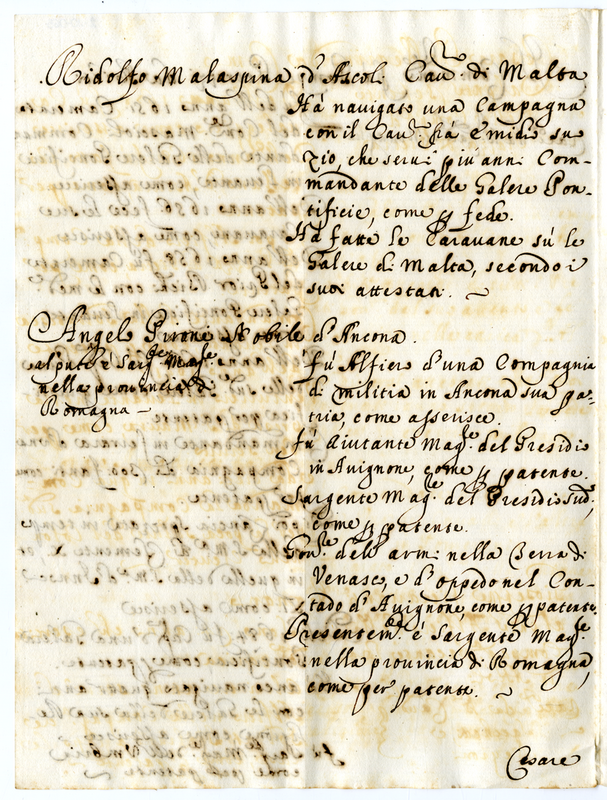 Ridolfo Malaspina d'Ascoli Cau.r di Malta
Há nauigato una Campagna
con il Cau.r frá Emidio suo
zio, che serui piu anni Com-
mandante delle Galere Pon-
tificie, come p fede.
Há fatte le Carauane sú le
Galere di Malta, secondo i
suoi attestati.
Angelo Pironi Nobile d'Ancona.
al pnte é Sarg.te Mag.re
nella prouincia di
Romagna
fú Alfiere d'una Compagnia
di militia in Ancona sua pa-
tria, come asserisce.
fú Aiutante Mag.re del Presidio
in Auignone, come p patente.
Sargente Mag.re del Presidio sud.o,
come p patente.
Gou.re dell'armi nella Terra di
Venasc, e d'Oppedo nel Con-
tado d'Auignone, come p patente.
Presentem.te é Sargente Mag.re
nella prouincia di Romagna,
come per patente.
fú Sarg.te Mag.re dell'Umbria
come p patente
Cesare